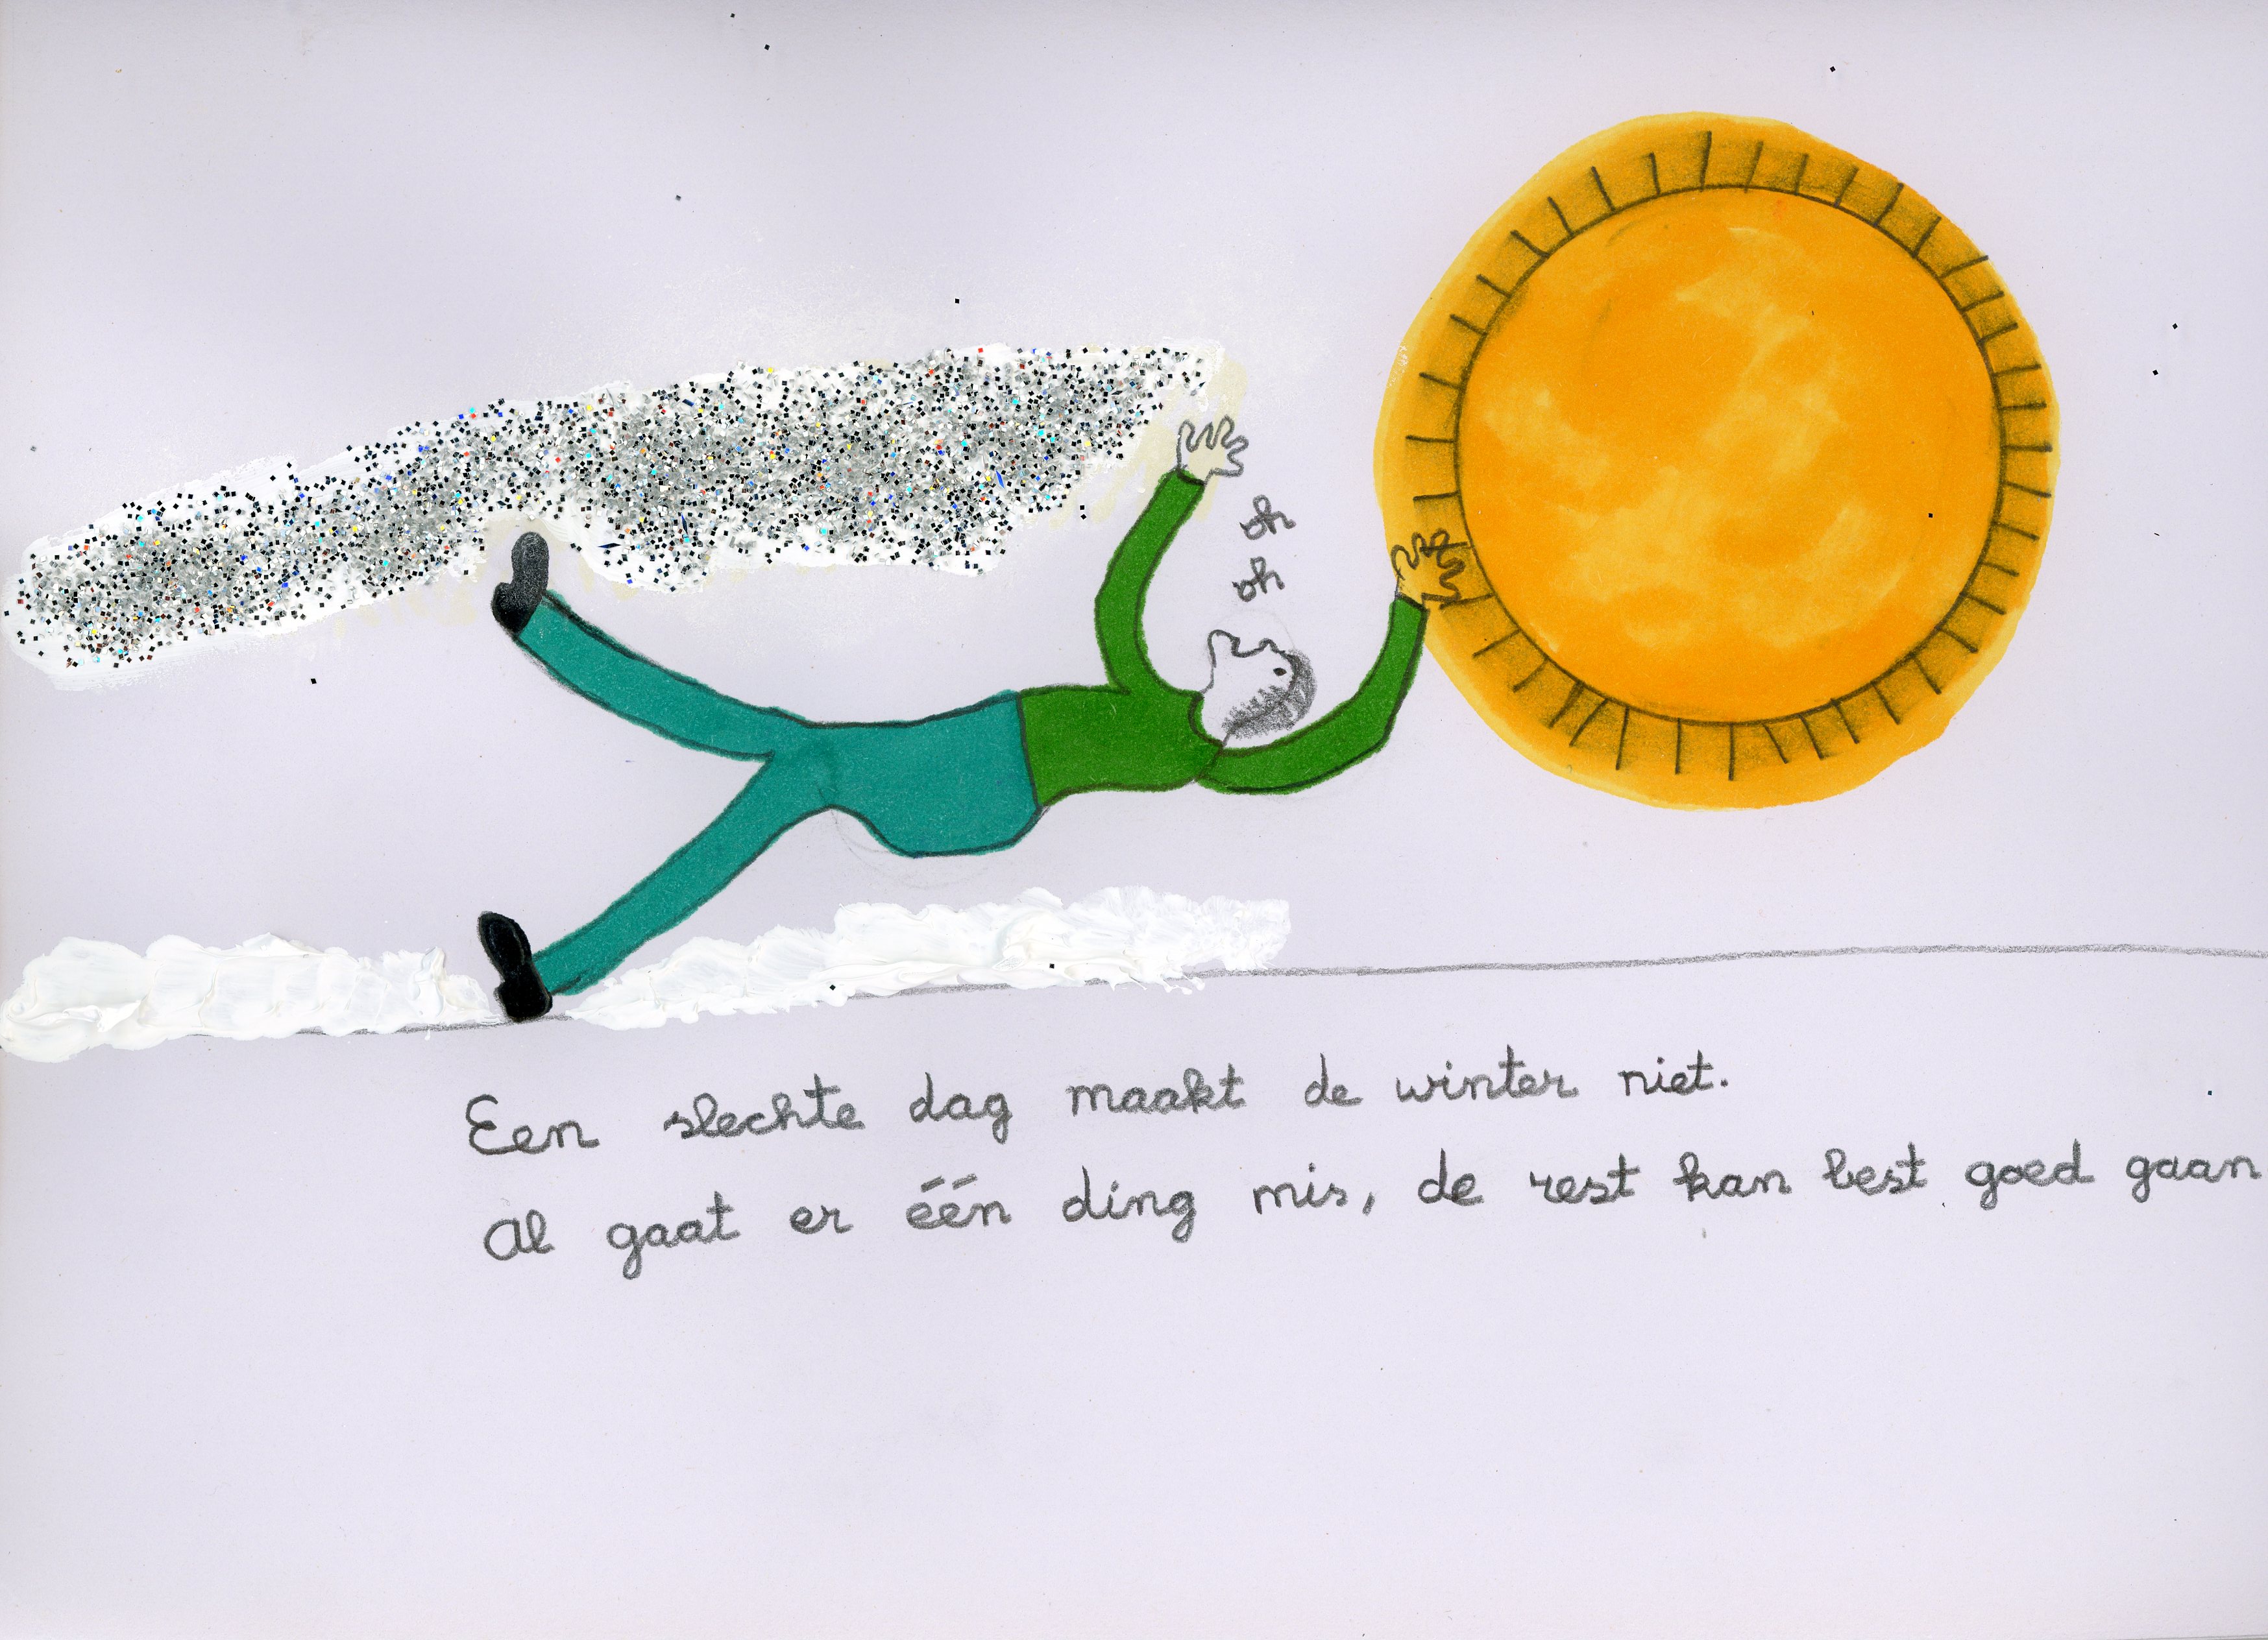 oh
oh
Een slechte dag maakt de winter niet.
Al gaat er één ding mis, de rest kan best goed gaan